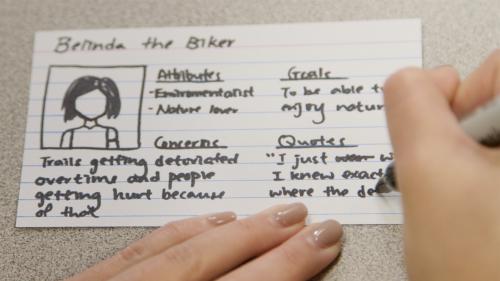 Belinda the Biker
Attributes
- Enviromentalist
- Nature lover
Goals
To be able t
enjoy natur
Concerns
Trails getting detoriated
overtime and people
getting hurt because
of that
Quotes
"I just w
I knew exact
where the de